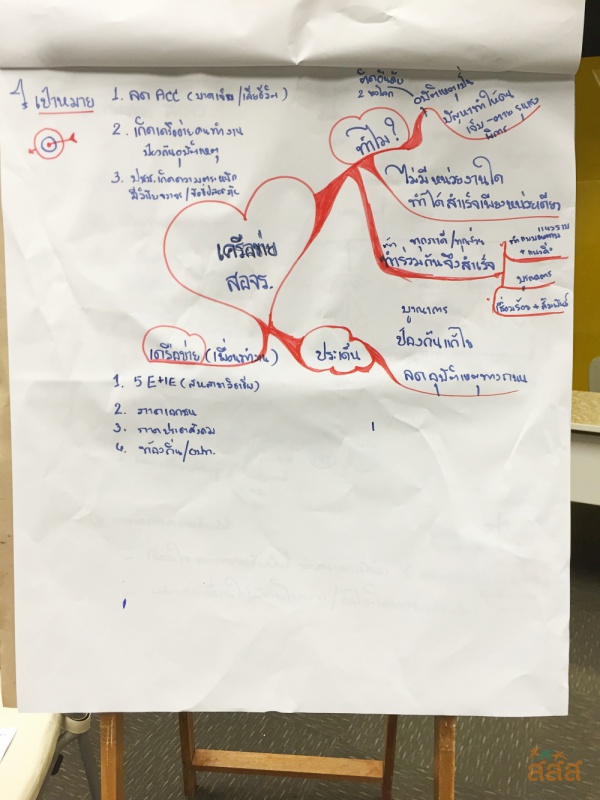 เป้าหมาย
1. ลด Acc (บาดเจ็บ/เสียชีวิต)
2. เกิดเครือข่ายคนทำงาน
ป้องกันอุบัติเหตุ
3. ปชช. เกิดความตระหนัก
มีวินัยจราจร/
ทำไม?
ติดอันดับ
2 ของโลก
อุบัติเหตุเป็น
ปัญหาทำให้คน
เจ็บ-ตาย รุนแรง
พิการ
ไม่มีหน่วยงานใด
ทำได้สำเร็จเพียงหน่วยเดียว
ทุกภาคี/
ทำร่วมกันจึงสำเร็จ
บูรณาการ
เครือข่าย
สอจร.
บูรณาการ
ป้องกันแก้ไข
ประเด็น
ลดอุบัติเหตุทางถนน
เครือข่าย (เพื่อนทำงาน)
1. 5E+1E (สหสาขาวิชาชีพ)
2. ภาคเอกชน
3. ภาคประชาสังคม
4. ท้องถิ่น/อปท.
สสส